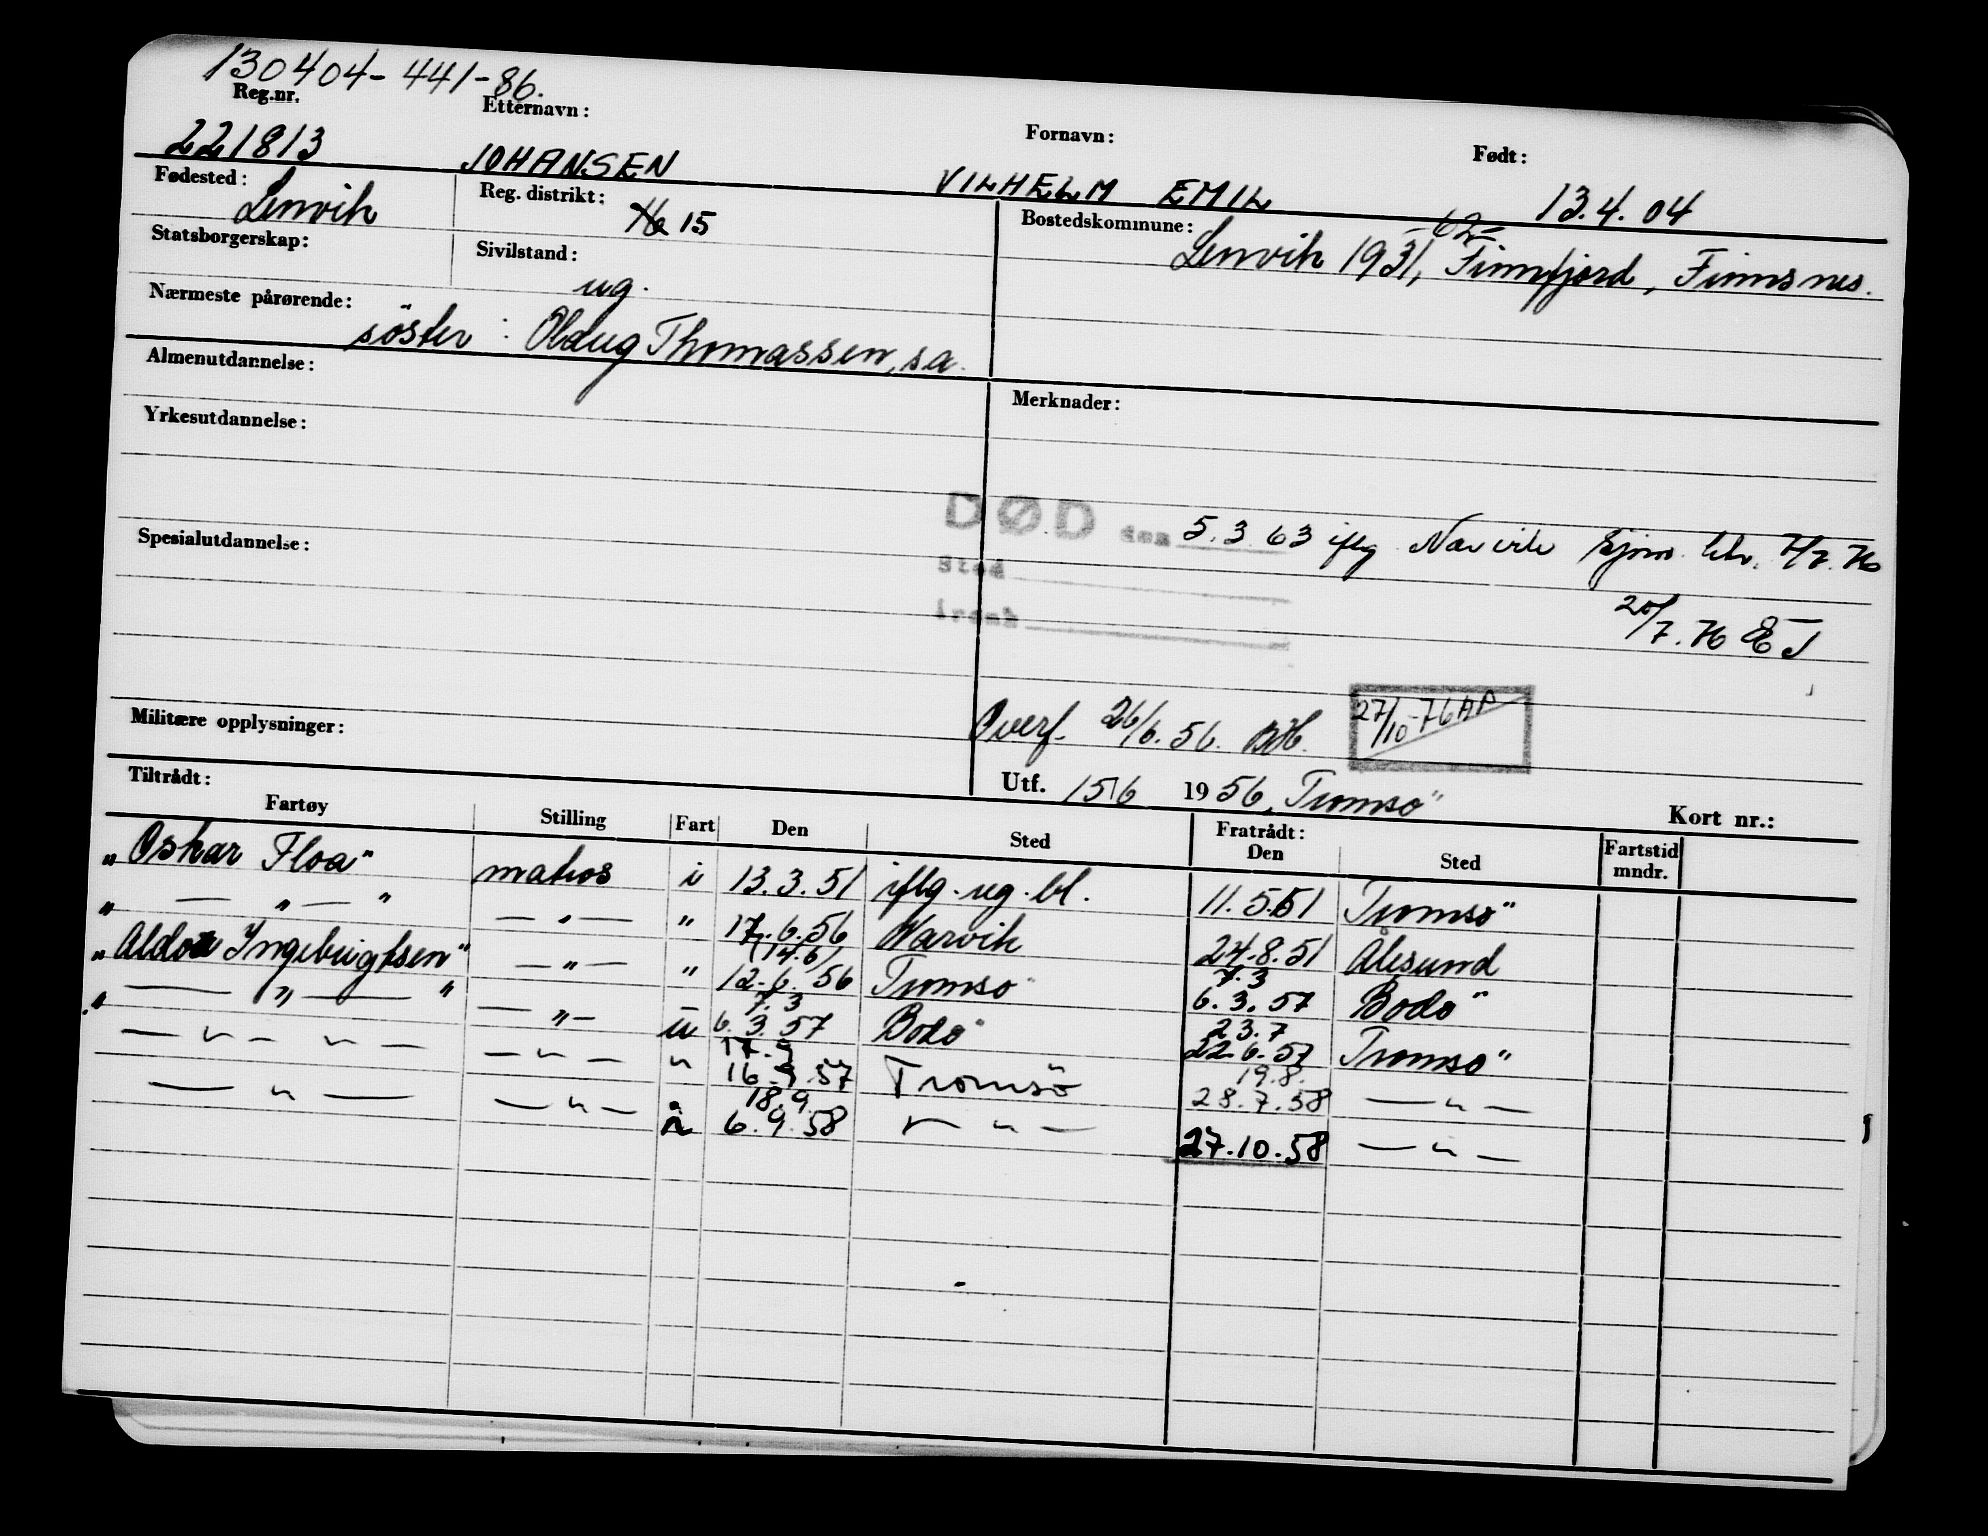 130404-441-86.
Reg.nr. Etternavn: Fornavn: Født:
221813 JOHANSEN VILHELM EMIL 13.4.04
Fødested: Lenvik Reg. distrikt: 15 Bostedskommune: Lenvik 1931, -62- Finnfjord, Finnsnes.
Statsborgerskap: Sivilstand: ug.
Nærmeste pårørende: söster: Oldug Thomassen, sa.
Almenutdannelse: Merknader:
Yrkesutdannelse:
DØD den 5.3.63 iflg Narvik sjøm.
Spesialutdannelse: Sted
20/7.76
Årsak
Overf. 26/6.56. 27/10-76 AA
Militære opplysninger:
Utf. 15/6 1956, Tromsö
Tiltrådt: Kort nr.:
Fartøy Stilling Fart Den Sted Fratrådt: Den Sted Fartstid mndr.
"Oskar Floa" matros i 13.3.51 iflg. ug. bl. 11.5.51 Tromsö
" — " — " — " — " 17.6.56 Narvik 24.8.51 Ålesund
"Aldor Ingebrigtsen" — " — " (14.6) 12.6.56 Tromsö 7.3 6.3.57 Bodö
" — " — " — " — u 7.3 6.3.57 Bodö 23.7 22.6.57 Tromsö
— " — " — — " — " 17.9 16.9.57 Tromsö 19.8. 28.7.58 — " —
— " — — " — 18.9. 6.9.58 — " — 27.10.58 — " —